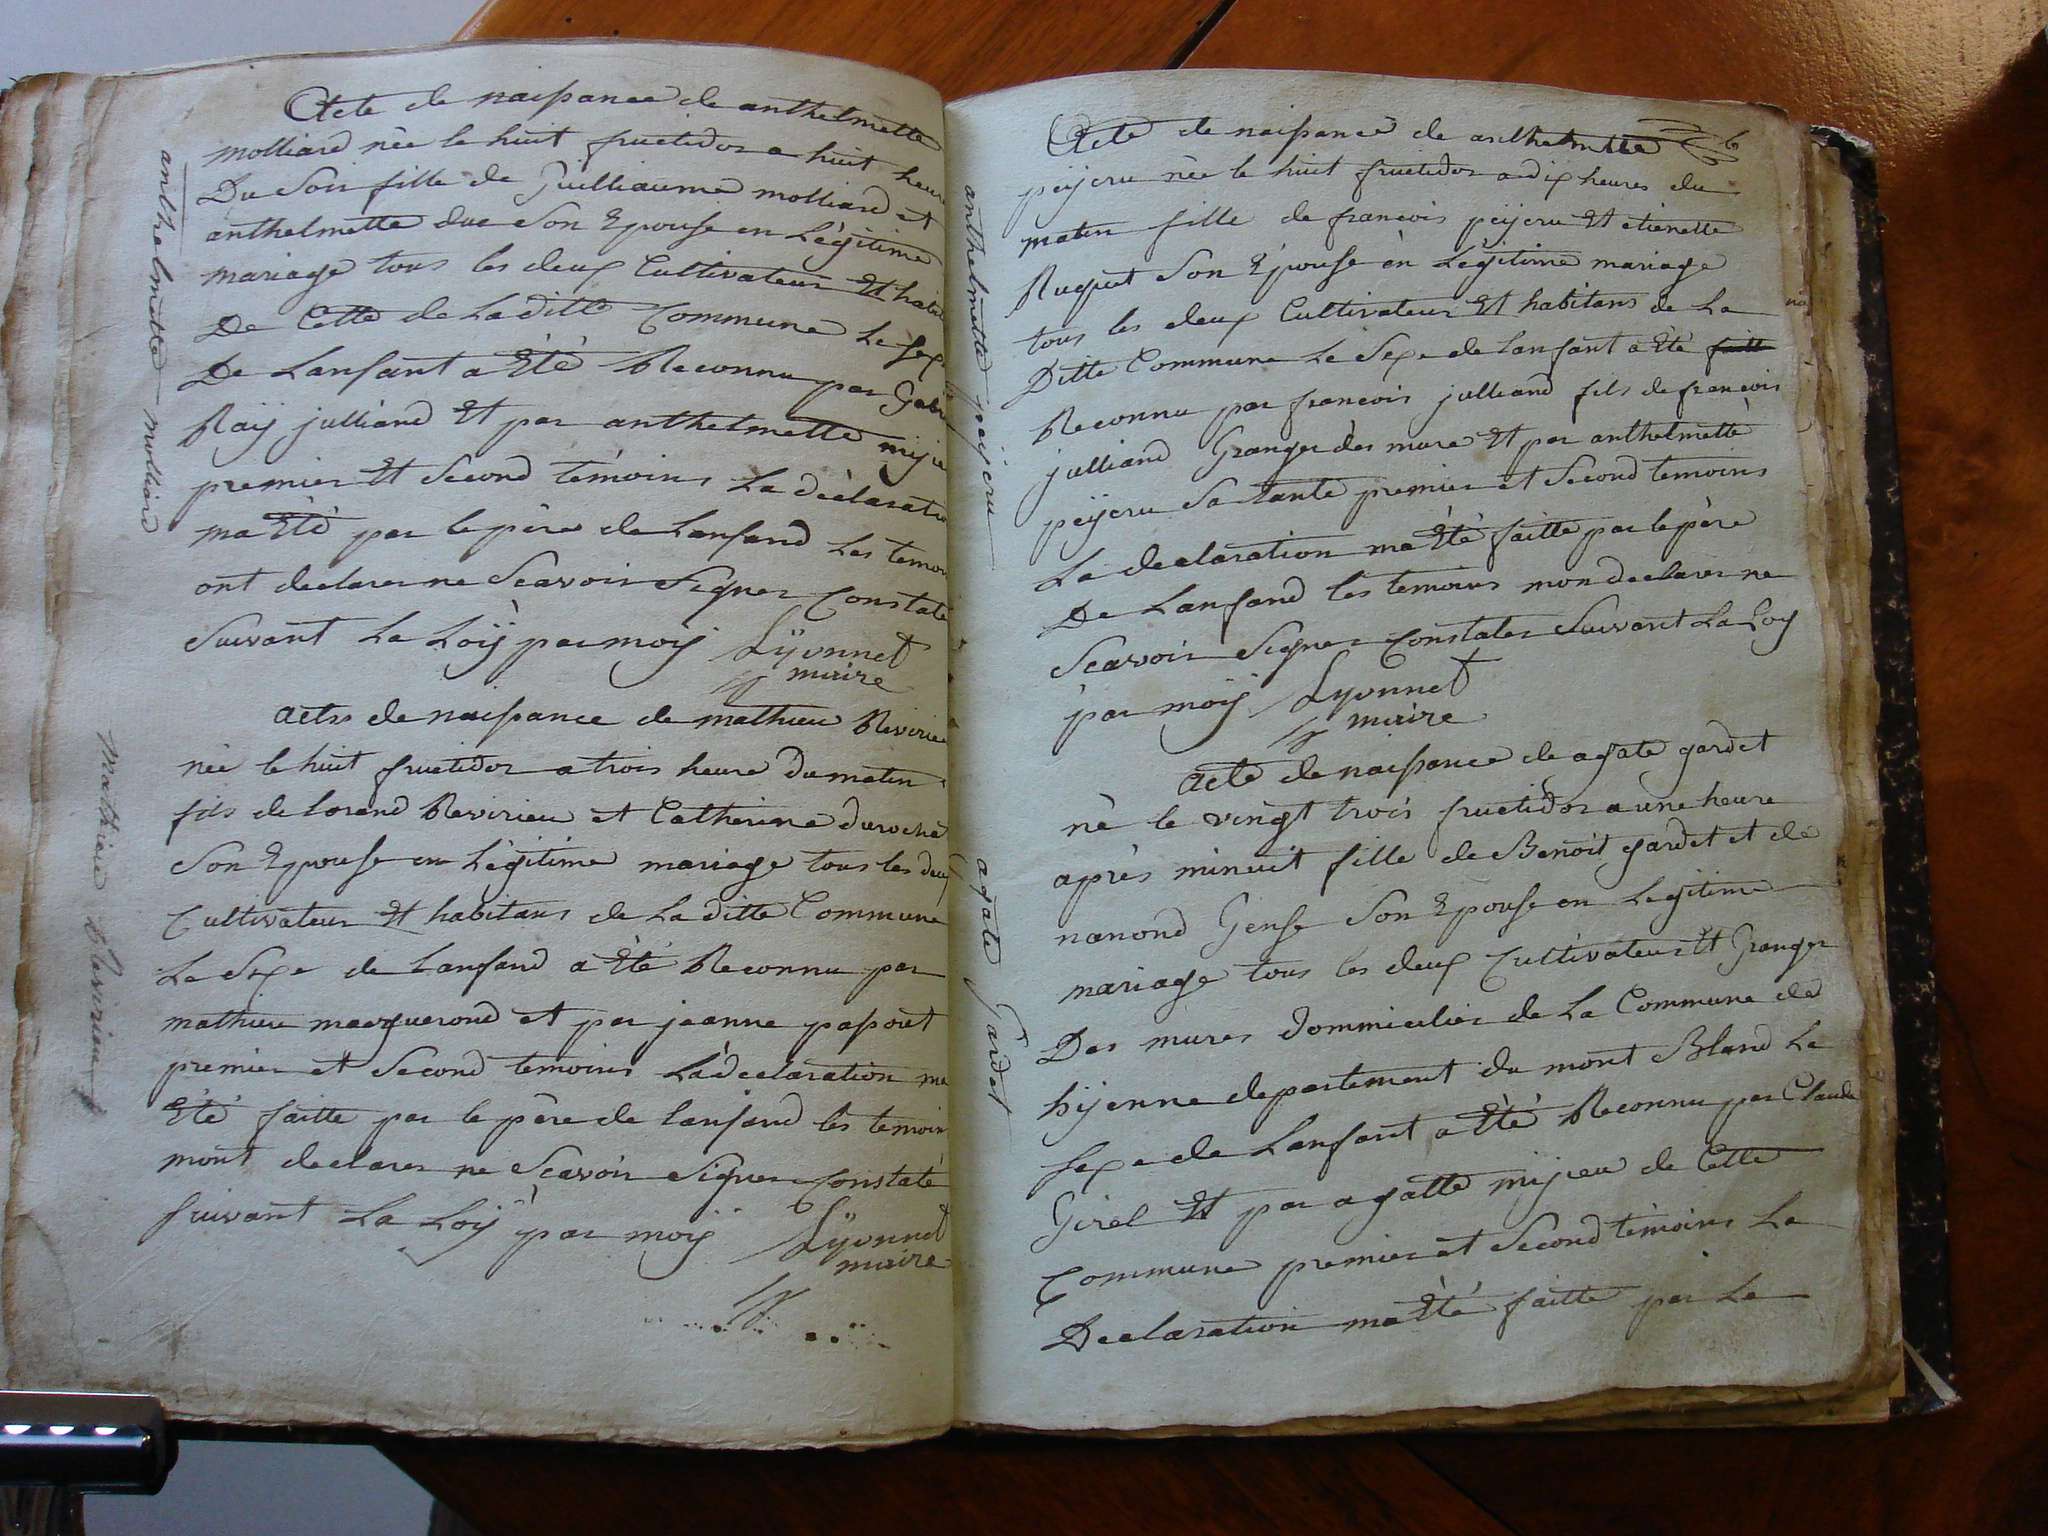 Acte de naissance de anthelmette
molliard née le huit fructidor a huit heure
Du Soir fille de Guilliaume molliard et
anthelmette duc Son Epouse en Légitime
mariage tous les deux Cultivateur Et
De Cette de Laditte Commune Le sex
De Lanfant a Eté Reconnu par
Raÿ julliand Et par anthelmette
premier Et Second témoins La déclaratio
ma Eté par le père de Lanfand Les
ont declarer ne Scavoir Signer Constaté
Suivant La Loÿ par moÿ Lÿonnet
maire
anthelmette molliard
actes de naissance de mathieu Revirieu
née le huit fructidor a trois heure du matin
fils de Lorend Revirieu et Catherine
Son Epouse en Légitime mariage tous les deux
Cultivateur Et habitans de La ditte Commune
Le Sexe de Lanfand a Eté Reconnu par
mathieu et par jeanne papout
premier et Second temoins La declaration ma
Eté faitte par le père de lanfand les temoins
mont declarer ne Scavoir Signer Constaté
Suivant La Loÿ par moÿ Lÿonnet
maire
mathieu Revirieu
Acte de naissance de anthelmette
peÿcru née le huit fructidor a dix heures du
matin fille de francois peÿcru Et etienette
Ruquet Son Epouse en Légitime mariage
tous les deux Cultivateur Et habitans de La
Ditte Commune Le Sexe de Lanfant a Eté faitt
Reconnu par francois julliand fils de francois
julliand Granger des mure Et par anthelmette
peÿcru Sa tante premier et Second temoins
La declaration ma Eté faitte par le père
De Lanfand les temoins mon declarer ne
Scavoir Signer Constater Suivant La Loy
par moÿ Lyonnet
maire
anthelmette peÿcru
acte de naissance de agate gardet
né le vingt trois fructidor a une heure
après minuit fille de Benoit gardet et de
nanond Gense Son Epouse en Legitime
mariage tous les deux Cultivateur Et Granger
Des mures dommicilier de La Commune de
hÿenne departement du mont Bland Le
sexe de Lanfant a Eté Reconnu par Claude
Girel Et par agatte mijeu de Cette
Commune premier et Second témoins La
Declaration ma Eté faitte par Le
agate Gardet